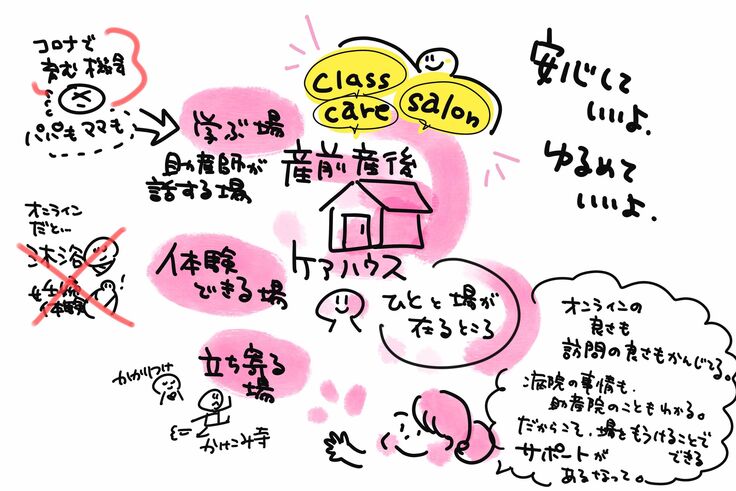 コロナで
育む機会
パパも ママも
学ぶ場
助産師が
話する場
class
care
salon
産前産後
ケアハウス
安心して
いいよ.
ゆるめて
いいよ.
オンライン
だと…
沐浴
妊婦
体験
体験
できる場
ひとと場が
在るところ
立ち寄る
場
かかりつけ
かけこみ寺
オンラインの
良さも
訪問の良さもかんじてる。
病院の事情も、
助産院のこともわかる。
だからこそ、場をもうけることで
できる
サポートが
あるなって。